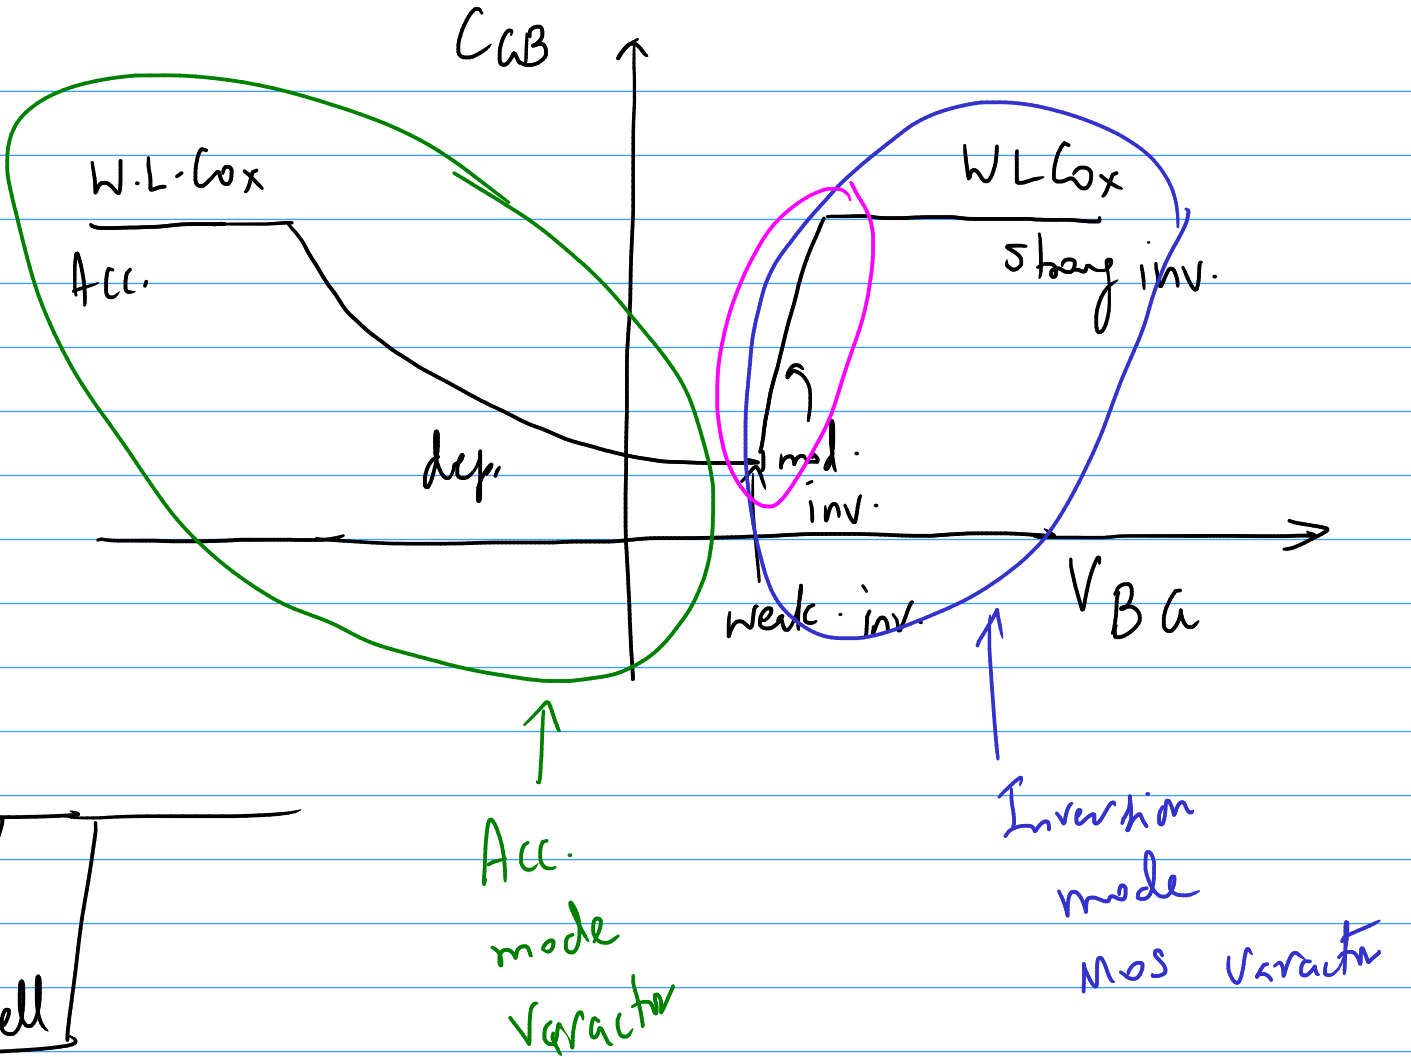 CGB
W.L.Cox
WLCox
Acc.
strong inv.
dep.
mod.
inv.
weak inv.
VBG
Acc.
mode
varactor
Inversion
mode
MOS varactor
ell